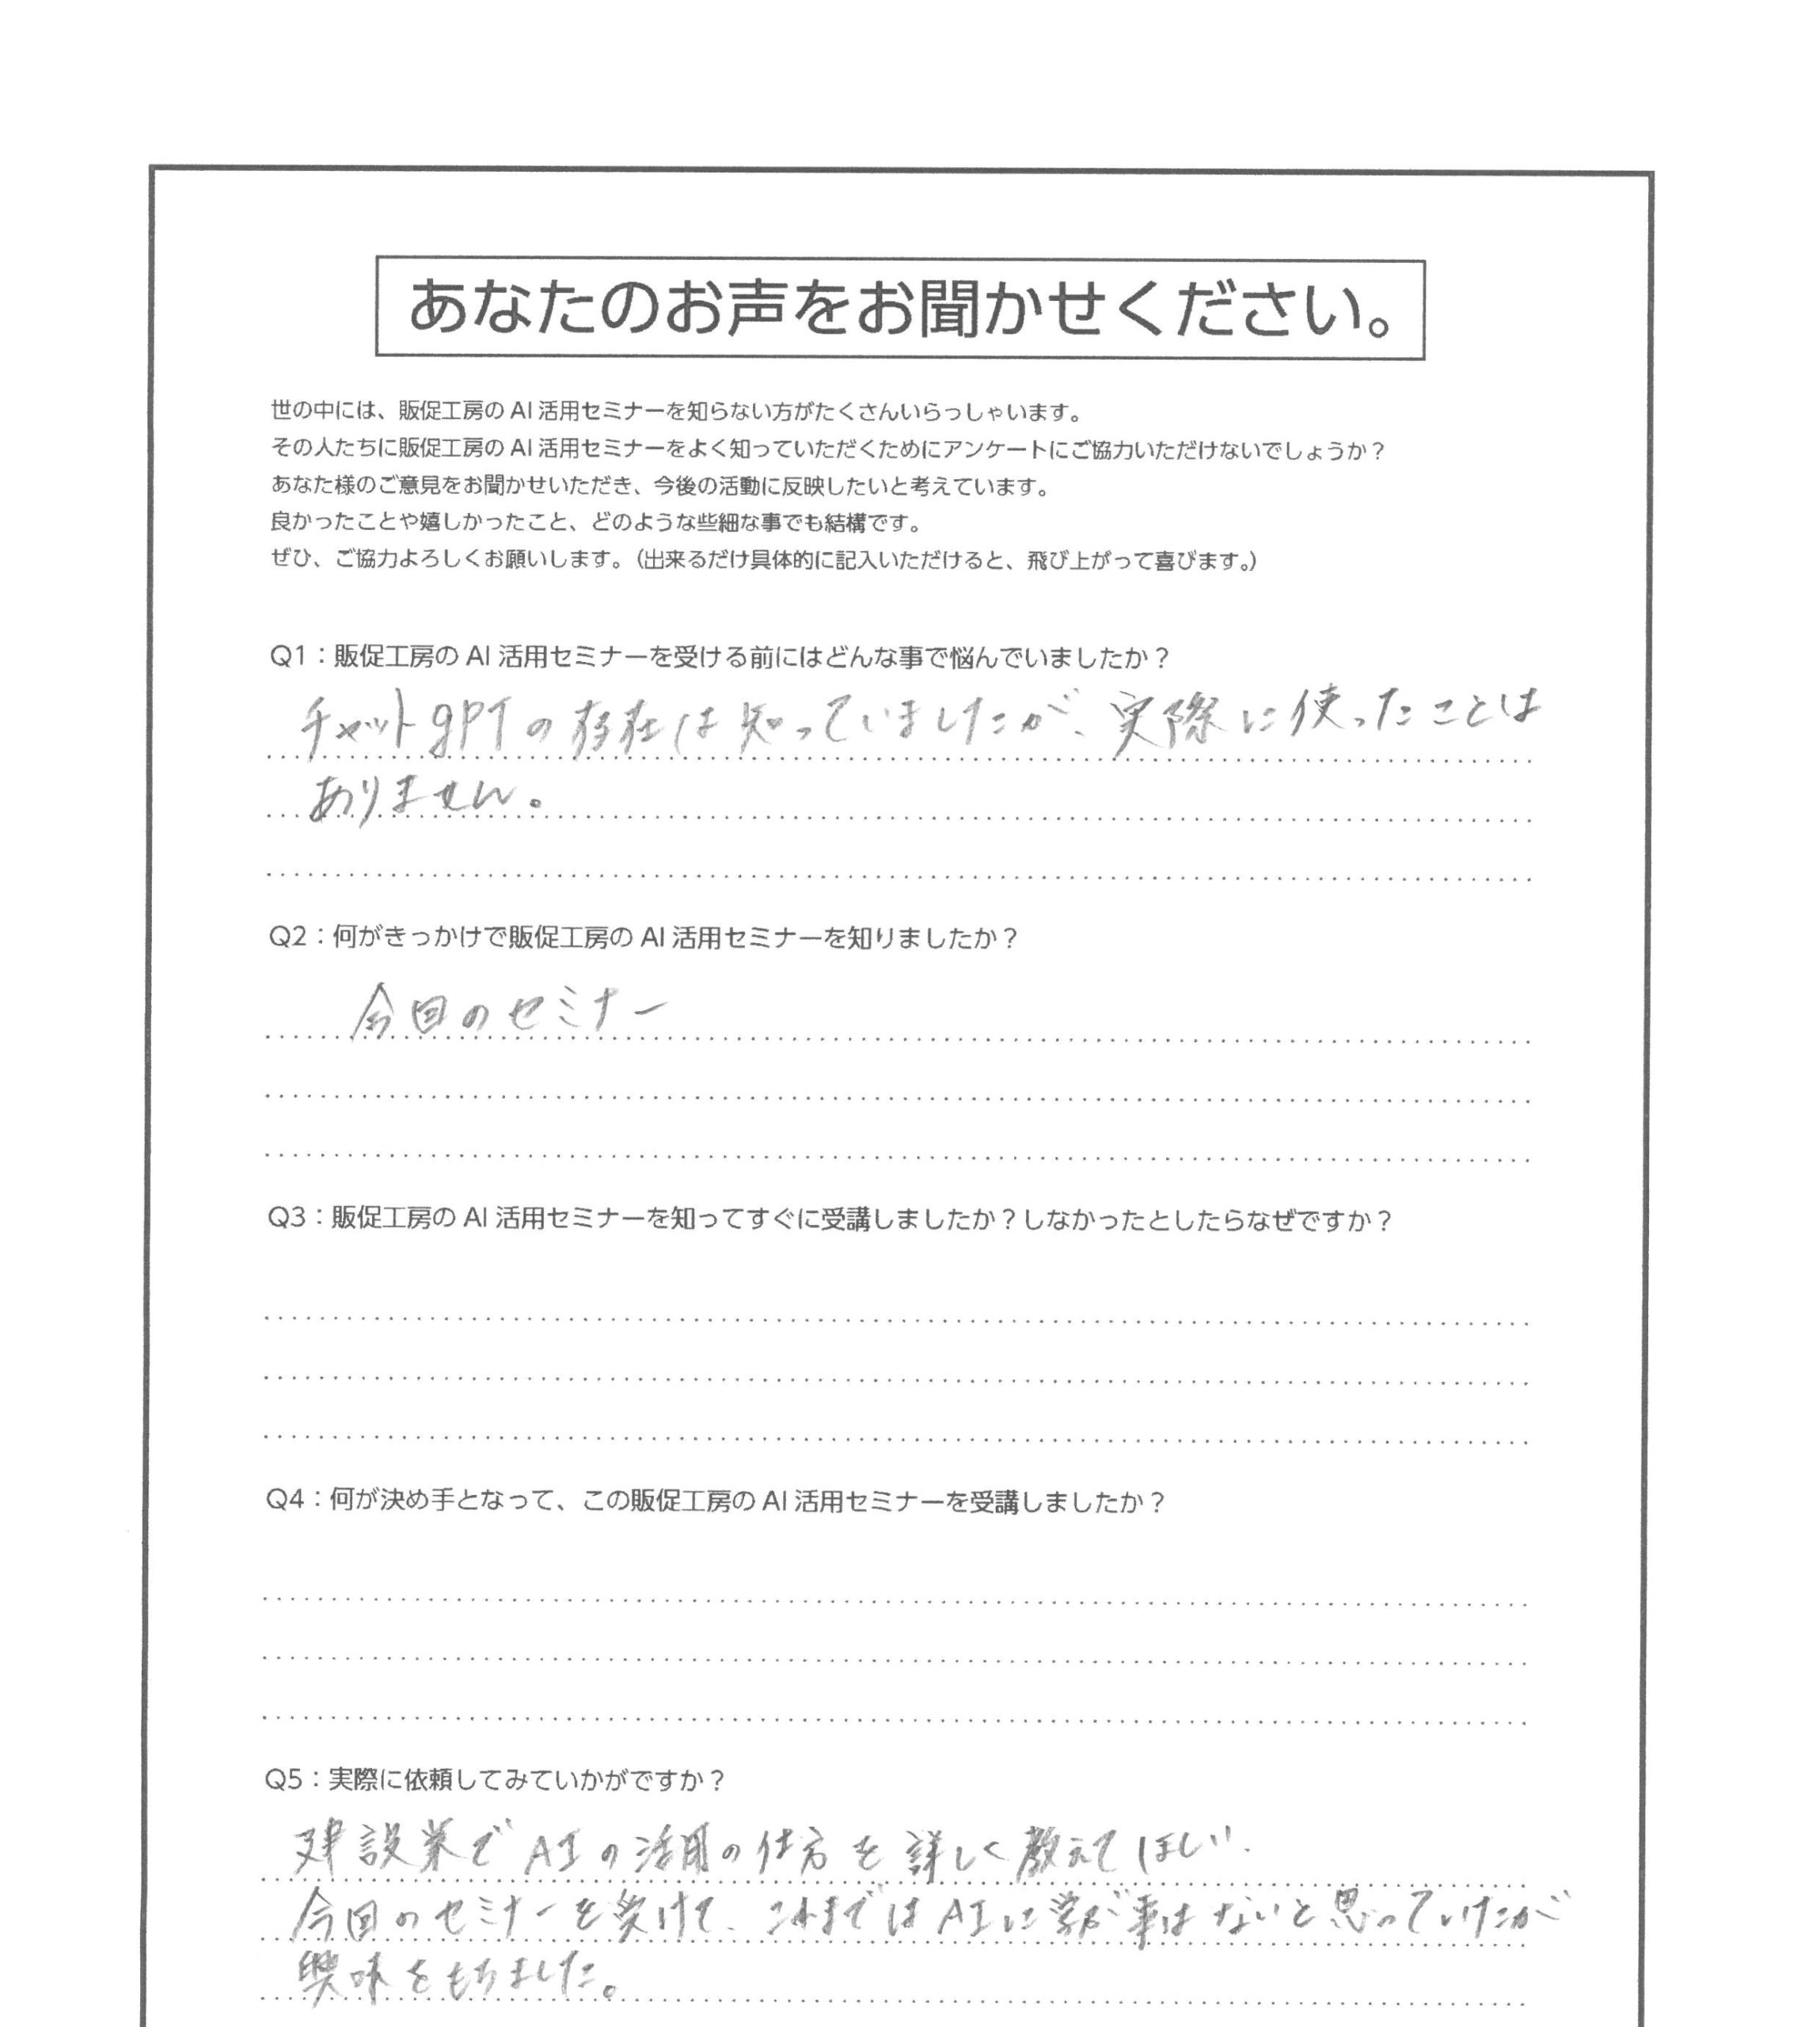 あなたのお声をお聞かせください。
世の中には、販促工房の AI 活用セミナーを知らない方がたくさんいらっしゃいます。
その人たちに販促工房の AI 活用セミナーをよく知っていただくためにアンケートにご協力いただけないでしょうか？
あなた様のご意見をお聞かせいただき、今後の活動に反映したいと考えています。
良かったことや嬉しかったこと、どのような些細な事でも結構です。
ぜひ、ご協力よろしくお願いします。（出来るだけ具体的に記入いただけると、飛び上がって喜びます。）
Q1：販促工房の AI 活用セミナーを受ける前にはどんな事で悩んでいましたか？
チャットgPTの存在は知っていましたが、実際に使ったことは
ありません。
Q2：何がきっかけで販促工房の AI 活用セミナーを知りましたか？
今回のセミナー
Q3：販促工房の AI 活用セミナーを知ってすぐに受講しましたか？しなかったとしたらなぜですか？
Q4：何が決め手となって、この販促工房の AI 活用セミナーを受講しましたか？
Q5：実際に依頼してみていかがですか？
建設業で AIの活用の仕方を詳しく教えてほしい。
今回のセミナーを受けて、これまではAIに学ぶ事はないと思っていたが
興味をもちました。